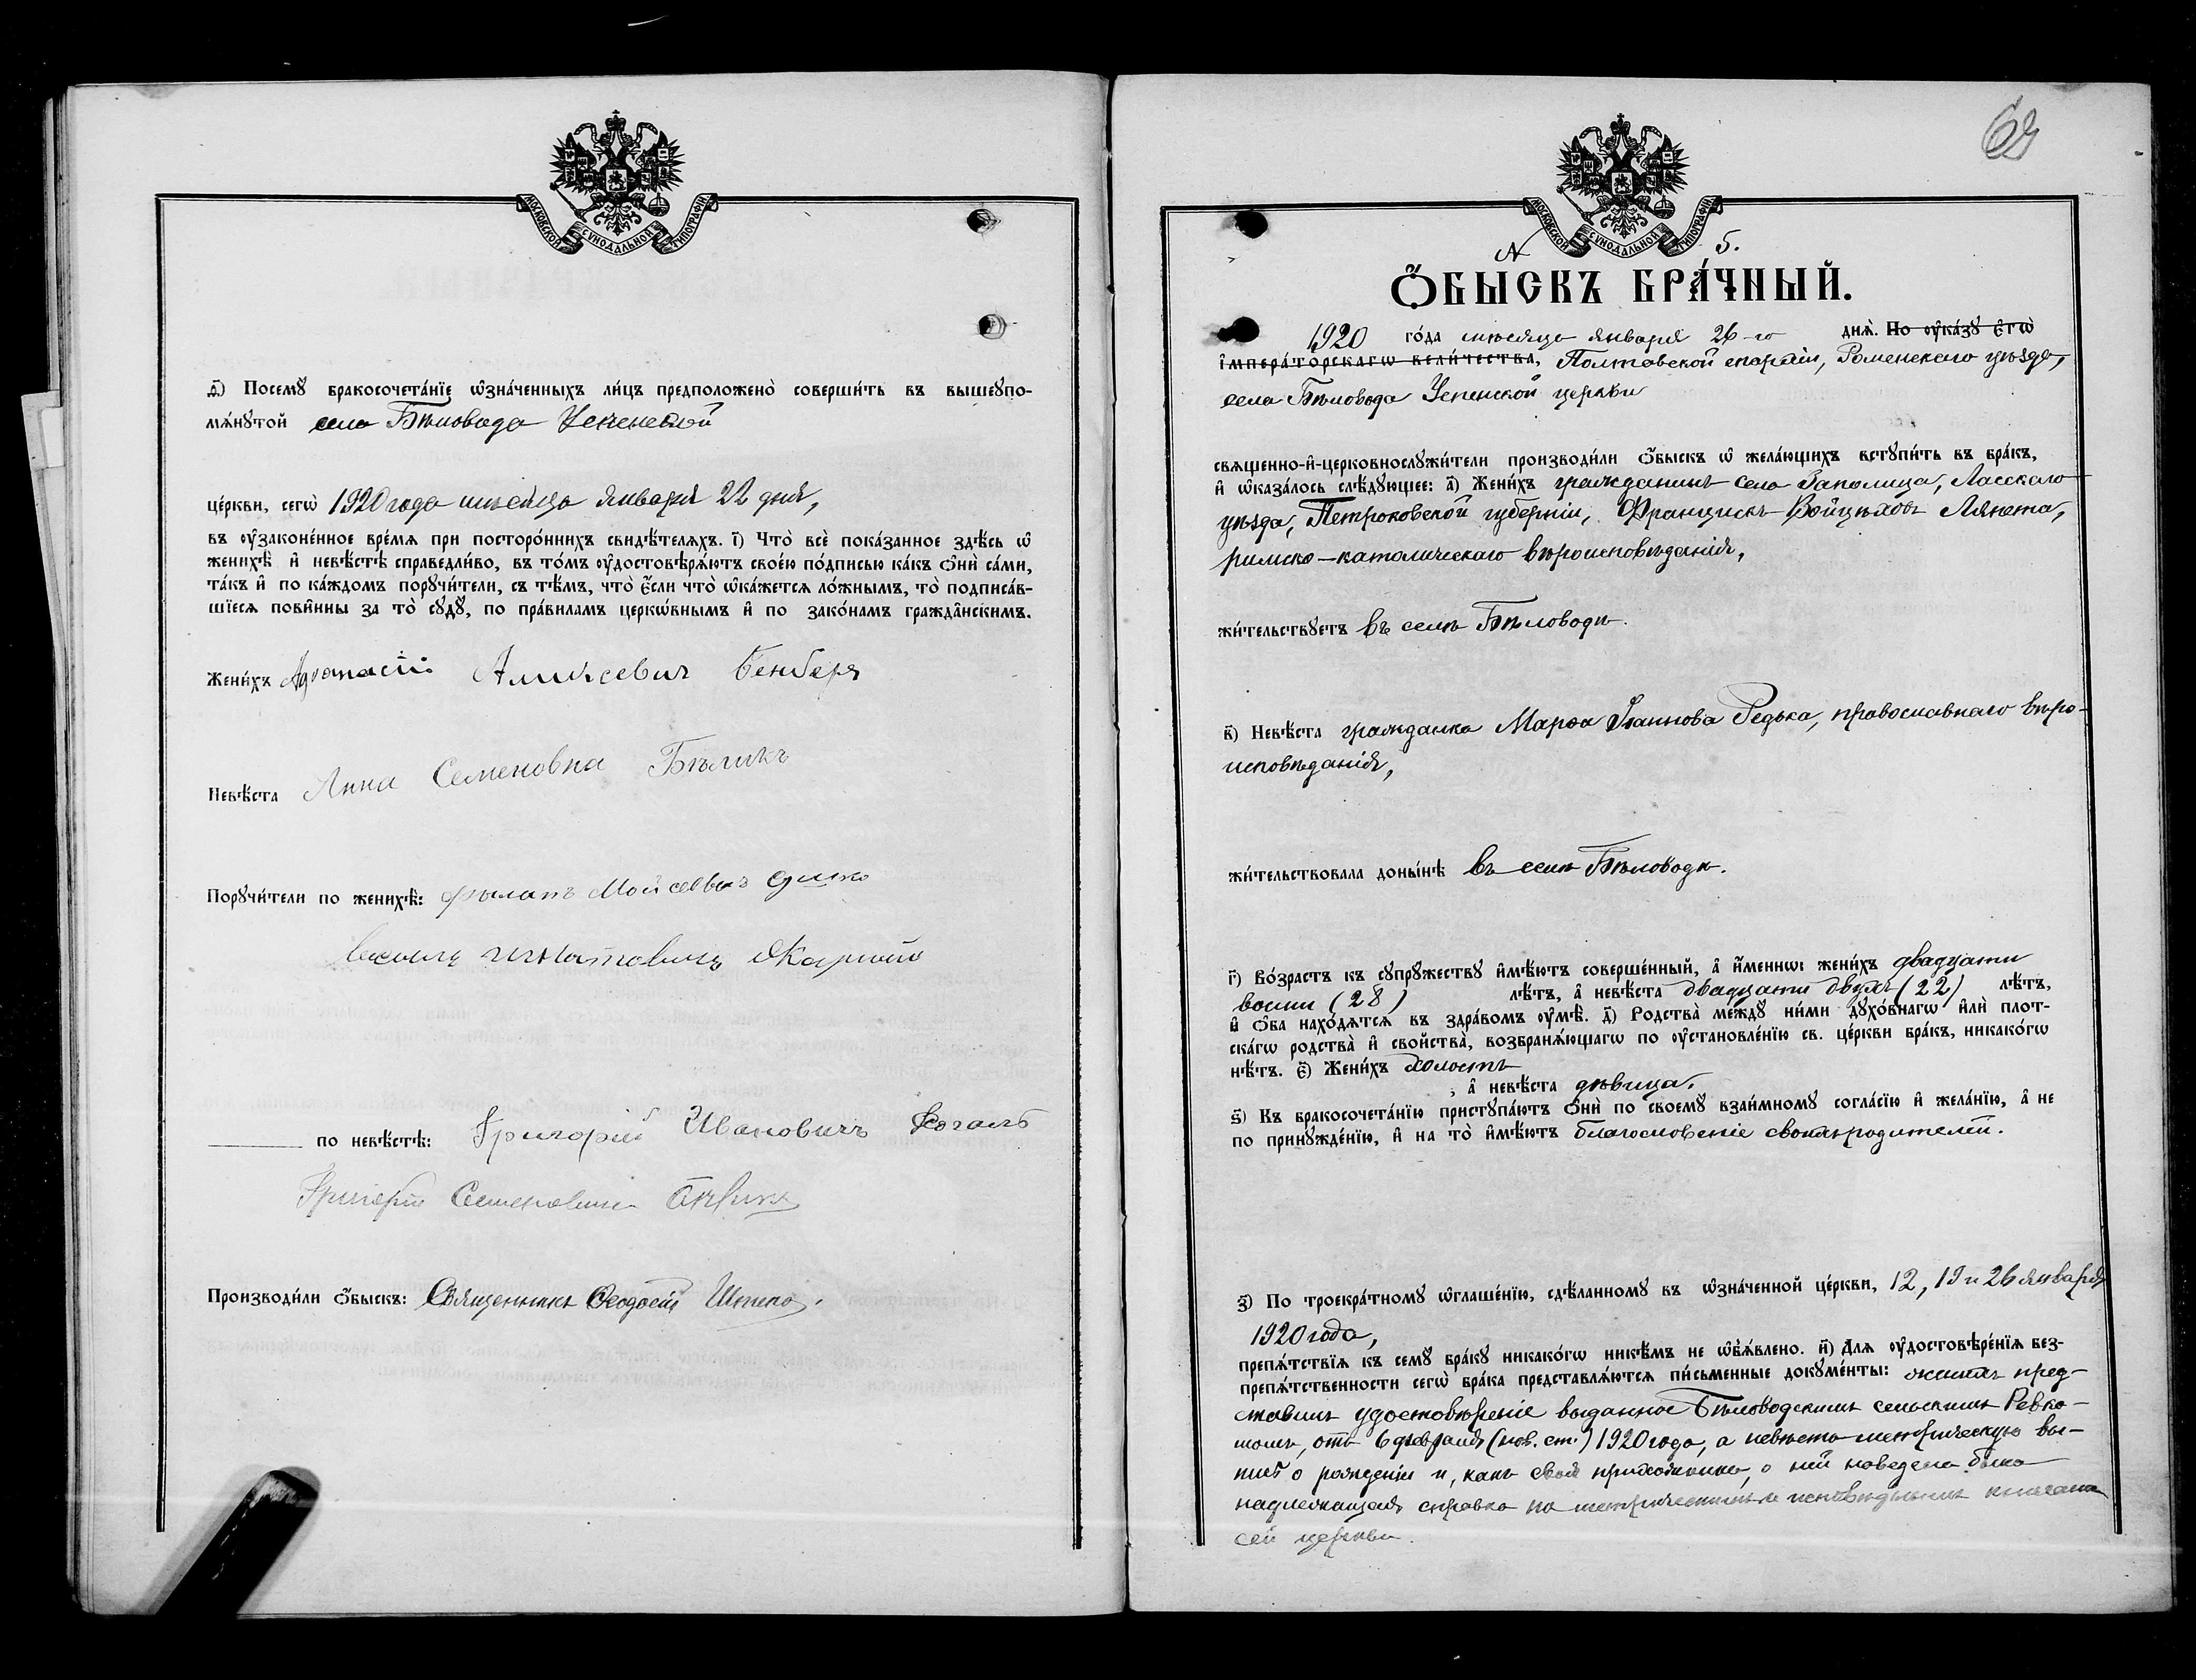 МОСКОВСКОЙ СѴНОДАЛЬНОЙ ТИПОГРАФІИ
д҃і) Посемꙋ бракосочета́нїе ѡ҆зна́ченныхъ ли́цъ предположено̀ соверши́ть въ вышеꙋпо-
мѧ́нꙋтой села Бѣловода Успенской
це́ркви, сегѡ̀ 1920 года мѣсяца января 22 дня,
въ ᲂу҆законе́нное вре́мѧ при посторо́ннихъ свидѣ́телѧхъ. і҃) Что̀ всѐ пока́занное здѣ́сь ѡ҆
женихѣ̀ и҆ невѣ́стѣ справедли́во, въ то́мъ ᲂу҆достовѣрѧ́ютъ свое́ю по́дписью ка́къ ѻ҆нѝ са́ми,
та́къ и҆ по ка́ждомъ порꙋчи́тели, съ тѣ́мъ, что̀ є҆́сли что̀ ѡ҆ка́жетсѧ ло́жнымъ, то̀ подписа́в-
шїесѧ пови́нны за то̀ сꙋдꙋ̀, по пра́виламъ церко́внымъ и҆ по зако́намъ гражда́нскимъ.
Жени́хъ Афанасій Алиѯсевич Бенберя
Невѣ́ста Анна Семеновна Бѣликъ
Порꙋчи́тели по женихѣ̀: Мойсевич
Василь Игнатовичъ
по невѣ́стѣ: Григорій Ивановичъ
Григорій Семеновичъ Бѣлик
Производи́ли ѻ҆́быскъ: Священникъ Ѳеодосій
69
МОСКОВСКОЙ СѴНОДАЛЬНОЙ ТИПОГРАФІИ
N 5.
Ѻ҆́БЫСКЪ БРА́ЧНЫЙ.
1920 го́да мѣсяца января 26-го днѧ̀. По ᲂу҆ка́зꙋ є҆гѡ̀
і҆мпера́торскагѡ вели́чества, Полтавской епархіи, Роменскаго уѣзда,
села Бѣловода Успенской церкви
свѧщенно-и҆-церковнослꙋжи́тели производи́ли ѻ҆́быскъ ѡ҆ жела́ющихъ встꙋпи́ть въ бра́къ,
и҆ ѡ҆каза́лось слѣ́дꙋющее: а҃) Жени́хъ гражданинъ села Заполица, Ласскаго
уѣзда, Петроковской губерніи, Францискъ Войцѣховъ Лянета,
римско-католическаго вѣроисповѣданія,
жи́тельствꙋетъ въ селѣ Бѣловодѣ.
в҃) Невѣ́ста гражданка Марѳа Іоаннова Редька, православнаго вѣро-
исповѣданія,
жи́тельствовала доны́нѣ въ селѣ Бѣловодѣ.
г҃) Во́зрастъ къ сꙋпрꙋ́жествꙋ и҆мѣ́ютъ соверше́нный, а҆ и҆́меннѡ: жени́хъ двадцати
восьми (28) лѣ́тъ, а҆ невѣ́ста двадцати двухъ (22) лѣ́тъ,
и҆ ѻ҆́ба нахо́дѧтсѧ въ здра́вомъ ᲂу҆мѣ̀. д҃) Родства̀ ме́ждꙋ ни́ми дꙋхо́внагѡ и҆лѝ плот-
ска́гѡ родства̀ и҆ свойства̀, возбранѧ́ющагѡ по ᲂу҆становле́нїю св. це́ркви бра́къ, никако́гѡ
нѣ́тъ. є҃) Жени́хъ холостъ
, а҆ невѣ́ста дѣвица.
ѕ҃) Къ бракосочета́нїю пристꙋпа́ютъ ѻ҆нѝ по своемꙋ̀ взаи́мномꙋ согла́сїю и҆ жела́нїю, а҆ не
по принꙋжде́нїю, и҆ на то̀ и҆мѣ́ютъ благословеніе своихъ родителей.
з҃) По троекра́тномꙋ ѡ҆глаше́нїю, сдѣ́ланномꙋ въ ѡ҆зна́ченной це́ркви, 12, 19 и 26 января
1920 года,
препѧ́тствїѧ къ семꙋ̀ бра́кꙋ никако́гѡ никѣ́мъ не ѡ҆б̾ѧ́влено. и҃) Длѧ̀ ᲂу҆достовѣре́нїѧ без-
препѧ́тственности сегѡ̀ бра́ка представлѧ́ютсѧ пи́сьменные докꙋме́нты: женихъ пред-
ставилъ удостовѣреніе выданное Бѣловодскимъ сельскимъ Ревко-
момъ, отъ 6 февраля (нов. ст.) 1920 года, а невѣста метрическую вы-
пись о рожденіи и, какъ своя прихожанка, о ней наведена была
надлежащая справка по метрическимъ и исповѣднымъ книгамъ
сей церкви.